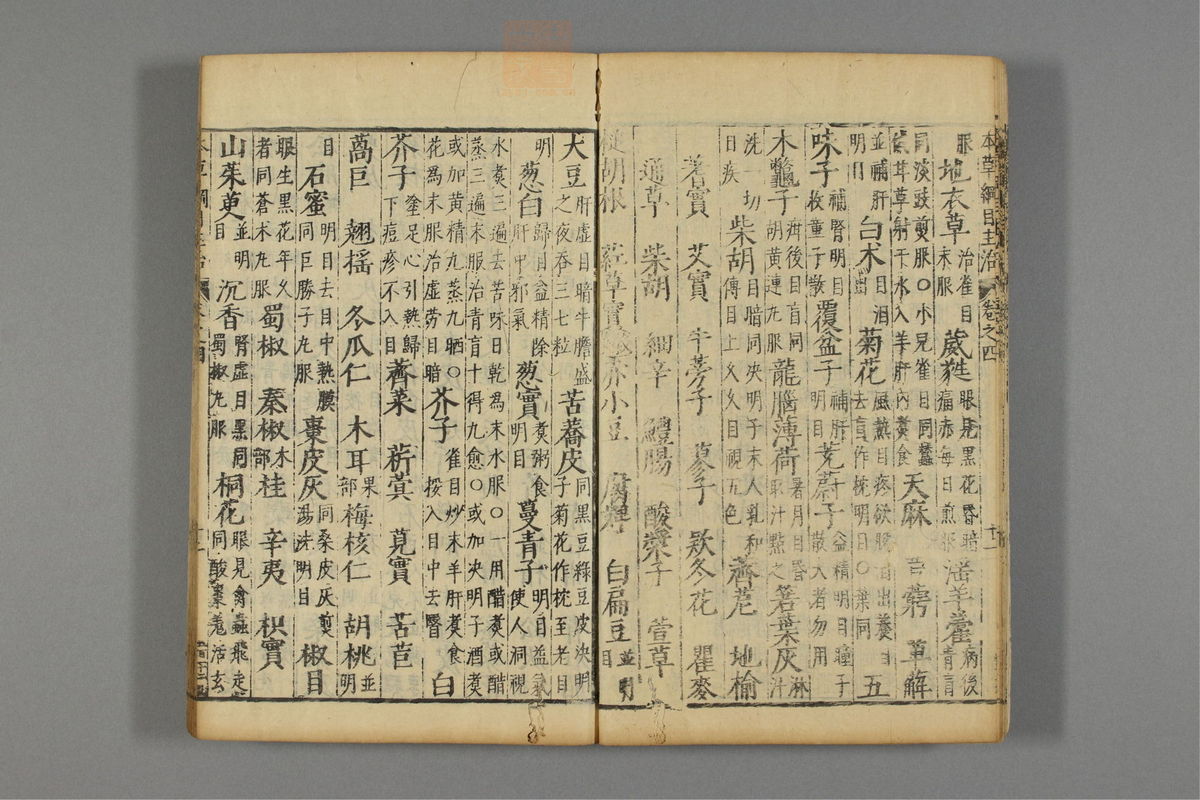 本草綱目主治 卷之四 十一
服 地衣草 治雀目末服 葳蕤 眼見黑花昏暗痛赤每日煎服 淫羊藿 病後青盲
同淡豉煎服〇小兒雀目同蠶甘草射干末入羊肝內煮食 天麻 芎藭 萆薢
並補肝明目 白术 目淚出 菊花 風熱目疼欲脫淚出養目去盲作枕明目〇葉同 五
味子 補腎明目收童子散 覆盆子 補肝明目 茺蔚子 益精明目瞳子散大者勿用
木鼈子 疳後目盲同胡黃連丸服 龍腦薄荷 暑月目昏取汁點之 箬葉灰 淋汁
洗一切目疾 柴胡 目暗同決明子末人乳和傅目上久久目視五色 薺苨 地榆
蓍實 艾實 牛蒡子 蓼子 款冬花 瞿麥
通草 柴胡 細辛 鱧腸 酸漿子 萱草
槌胡根 葒草實 赤小豆 腐婢 白扁豆 並明目
大豆 肝虛目暗牛膽盛之夜吞三七粒 苦蕎皮 同黑豆綠豆皮決明子菊花作枕至老目
明 葱白 歸目益精除肝中邪氣 葱實 煮粥食明目 蔓青子 明目益氣使人洞視
水煮三遍去苦味日乾為末水服〇一用醋煮或醋蒸三遍末服治青盲十得九愈〇或加決明子酒煮
或加黃精九蒸九晒〇花為末服治虛勞目暗 芥子 雀目炒末羊肝煮食挼入目中去翳 白
芥子 塗足心引熱歸下痘疹不入目 薺菜 菥蓂 莧實 苦苣
萵巨 翹搖 冬瓜仁 木耳 果部 梅核仁 胡桃 並明
目 石蜜 明目去目中熱膜同巨勝子丸服 棗皮灰 同桑皮灰煎湯洗明目 椒目
眼生黑花年久者同蒼朮丸服 蜀椒 秦椒 木部 桂 辛夷 枳實
山茱萸 並明目 沉香 腎虛目黑同蜀椒丸服 桐花 眼見禽蟲飛走同酸棗羌活玄